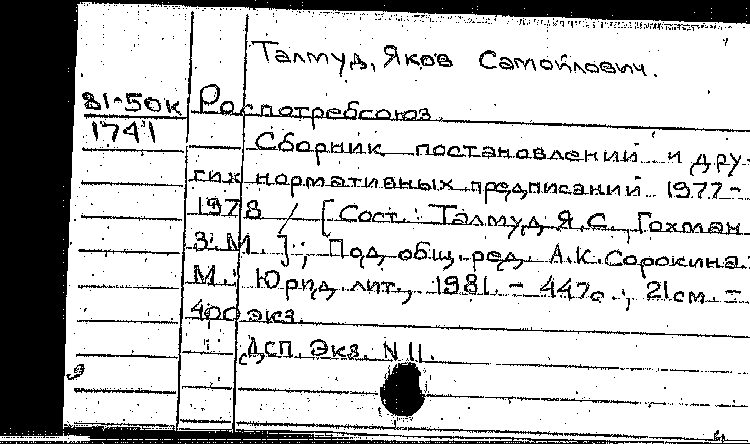 Талмуд, Яков Самойлович.
81-50к
1741
Роспотребсоюз.
Сборник постановлений и дру-
гих нормативных предписаний 1977-
1978 / [Сост.: Талмуд Я.С. Гохман
З.М.]; Под общ. ред. А.К. Сорокина.
М.: Юрид. лит., 1981. - 447с.; 21см. -
400 экз.
ДСП. Экз. N 11.